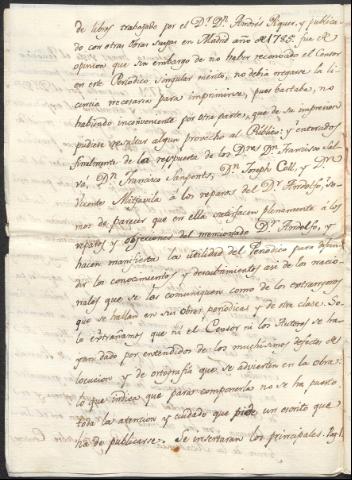 de libros trabajado por el Dr. Dn. Andrés Piquer, y publica-
do con otras obras suyas en Madrid año de 1785. fue de
opinion que sin embargo de no haber reconocido el Censor
en este Periódico singular merito, no debia negarse la li-
cencia necesaria para imprimirse, pues bastaba, no
habiendo inconveniente por otra parte, que de su impresion
pudiera resultar algun provecho al Público: y enterados
finalmente de la respuesta de los Dres. Dn. Francisco Sal-
vá, Dn. Francisco Sanponts, Dn. Joseph Coll, y Dn.
Vicente Mitjavila à los reparos del Dr. Ardolfo, so-
mos de parecer que en ella satisfacen plenamente à los
reparos y objeciones del mencionado Dr. Ardolfo, y
hacen manifiesta la utilidad del Periodico para difun-
dir los conocimientos y descubrimientos asi de los nacio-
nales que se les comuniquen como de los extrangeros
que se hallan en sus obras periodicas y de otra clase. So-
lo extrañamos que ni el Censor ni los Autores se ha-
yan dado por entendidos de los muchísimos defectos de
locucion y de ortografía que se advierten en la obra:
lo que indica que para componerla no se ha puesto
toda la atencion y cuidado que pide un escrito que
ha de publicarse. Se insertaran los principales. Pag. 1.